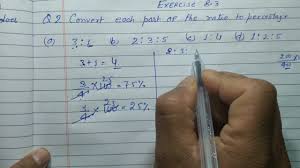 Exercise 8.3
Q2 Convert each part of the ratio to percentage
(a) 3:1 b) 2:3:5 c) 1:4 d) 1:2:5
3+1=4
3/4 × 100 = 75%
1/4 × 100 = 25%
2:3: